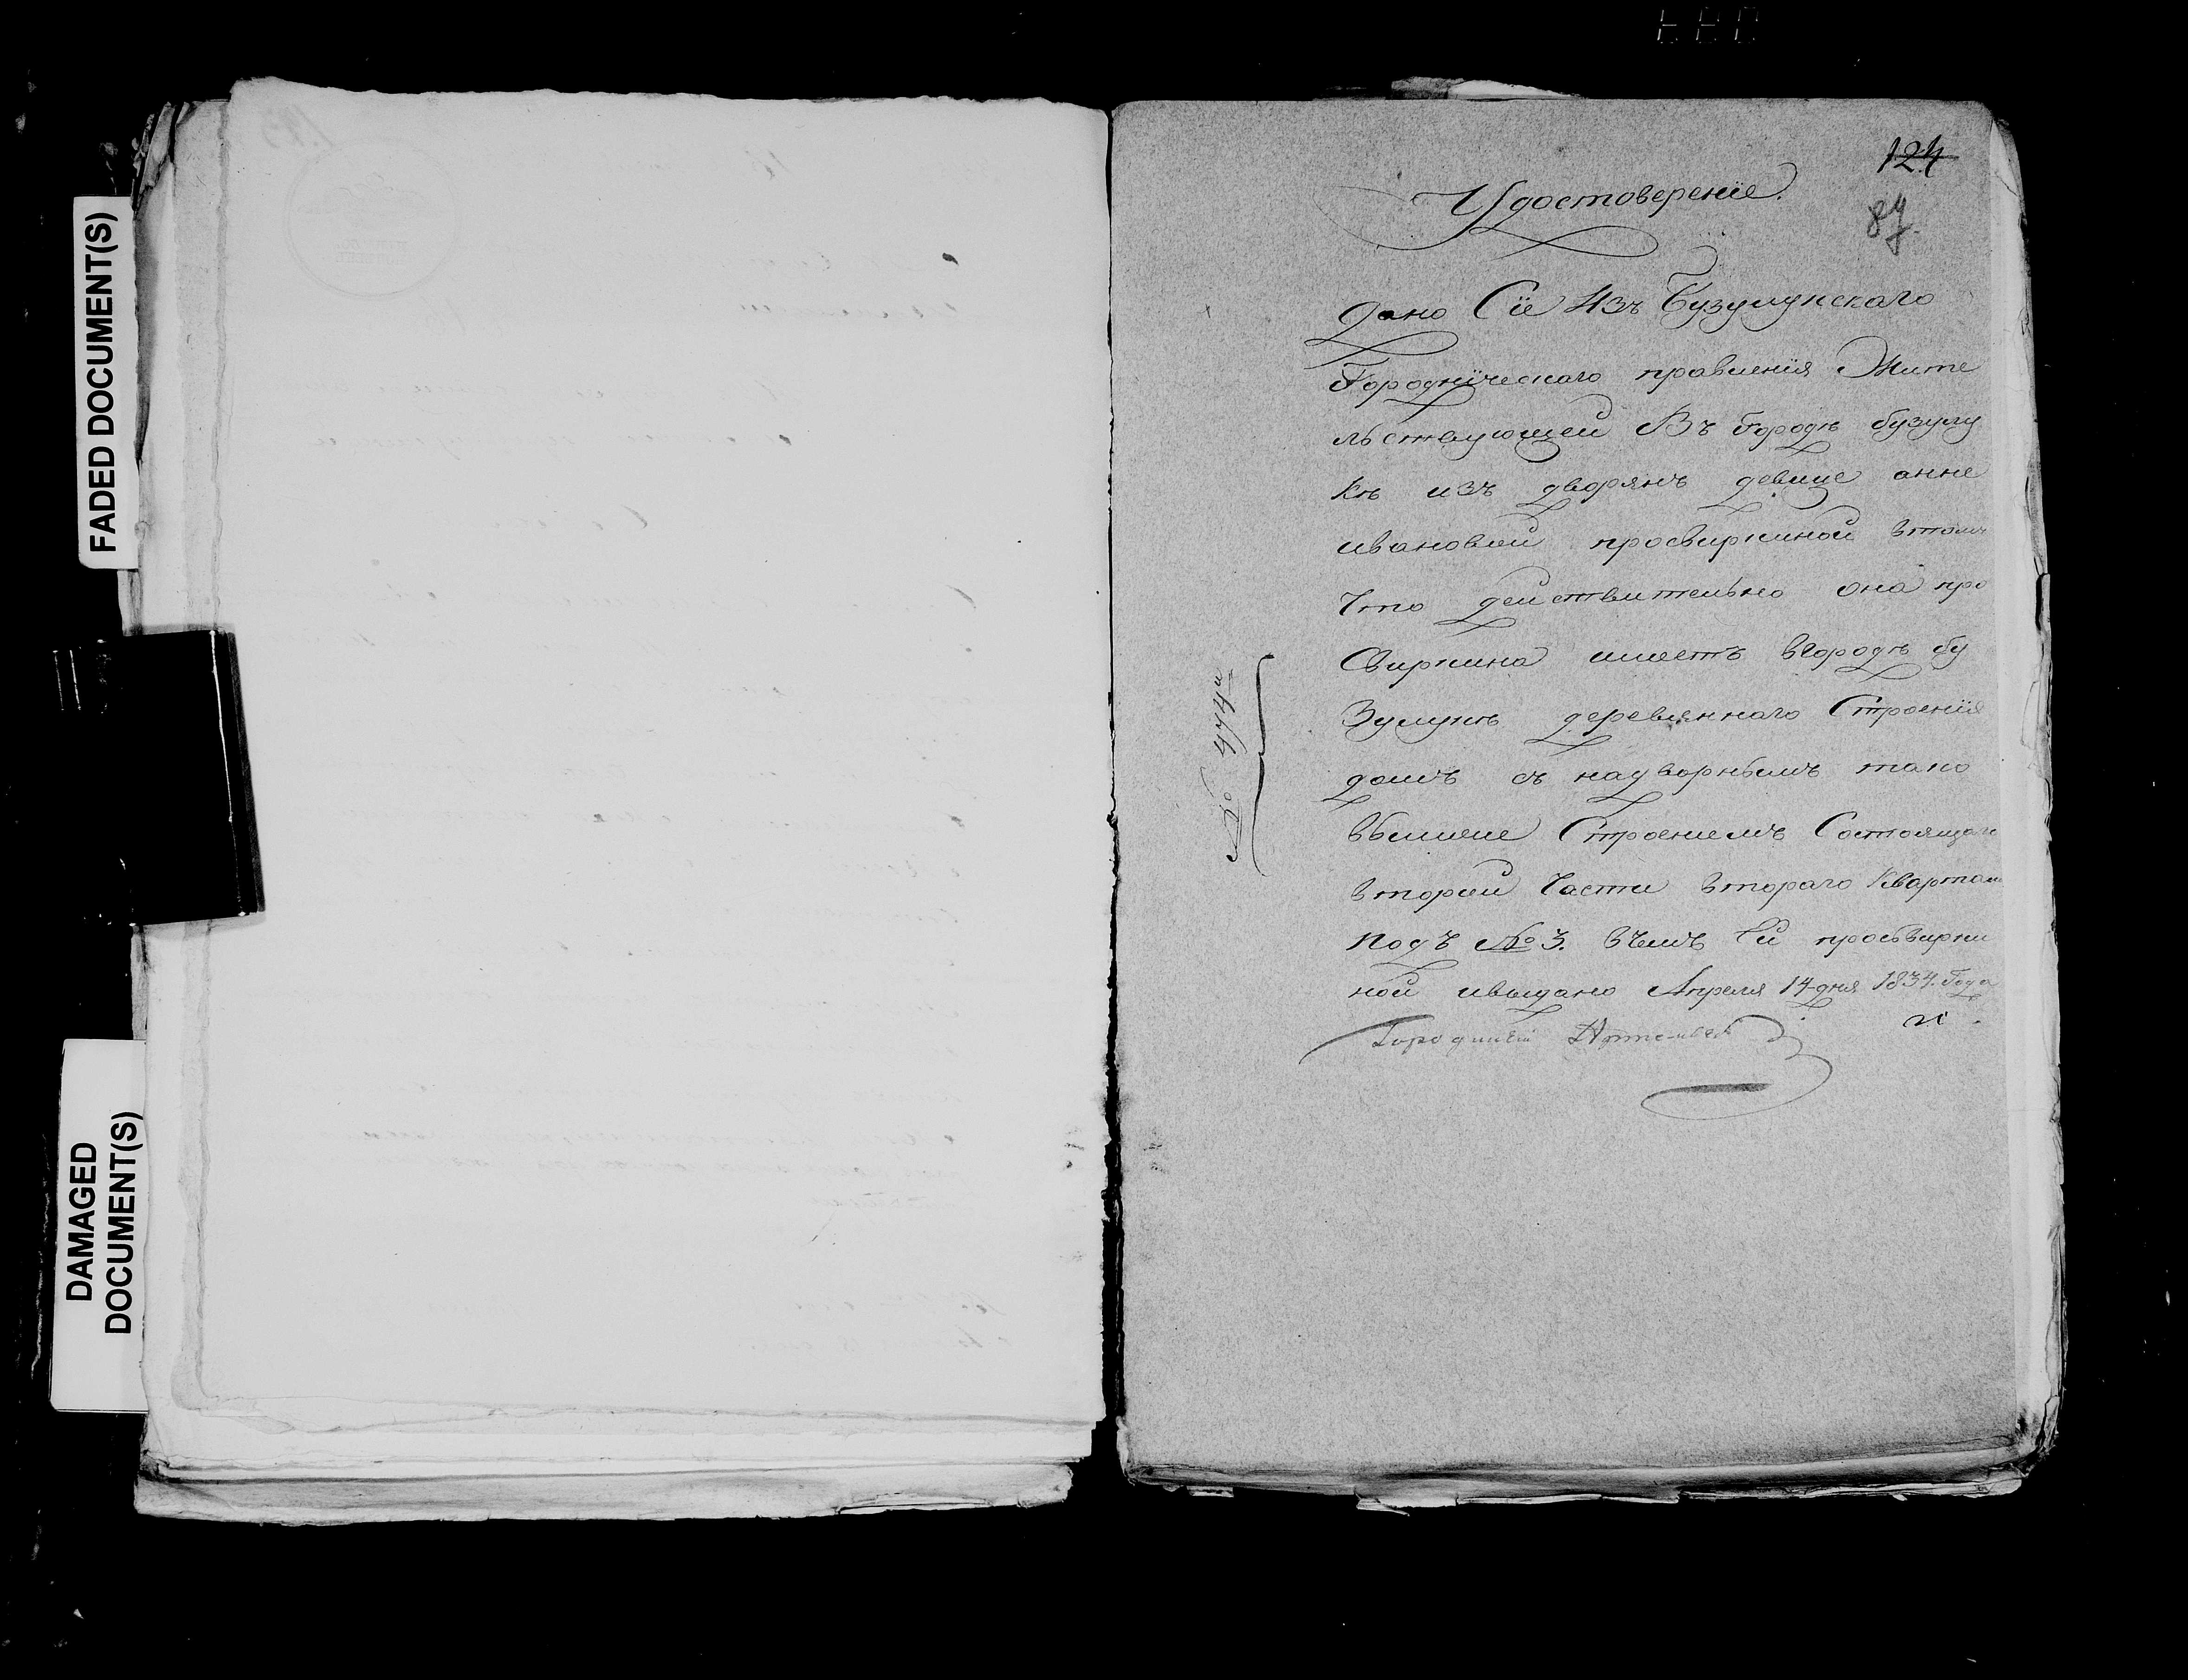 FADED DOCUMENT(S)
DAMAGED
DOCUMENT(S)
124
87.
Удостоверенїе.
Дано Сїе Изъ Бузулукскаго
Городнїческаго правленїя Жите
льствующей Въ городѣ бузулу
кѣ изъ дворянъ девице анне
ивановой просвиркиной втомъ
Что действительно она про
Свиркина имеетъ вгородѣ бу
Зулукѣ деревяннаго Строенїя
домъ съ надворнымъ тако
вымже Строениемъ Состоящаго
второй Части втораго Квартала
подъ № 3. вчемъ Ей просвирки
ной ивыдано Апреля 14 дня 1834. Года
Городничий Артемьев
№ 474